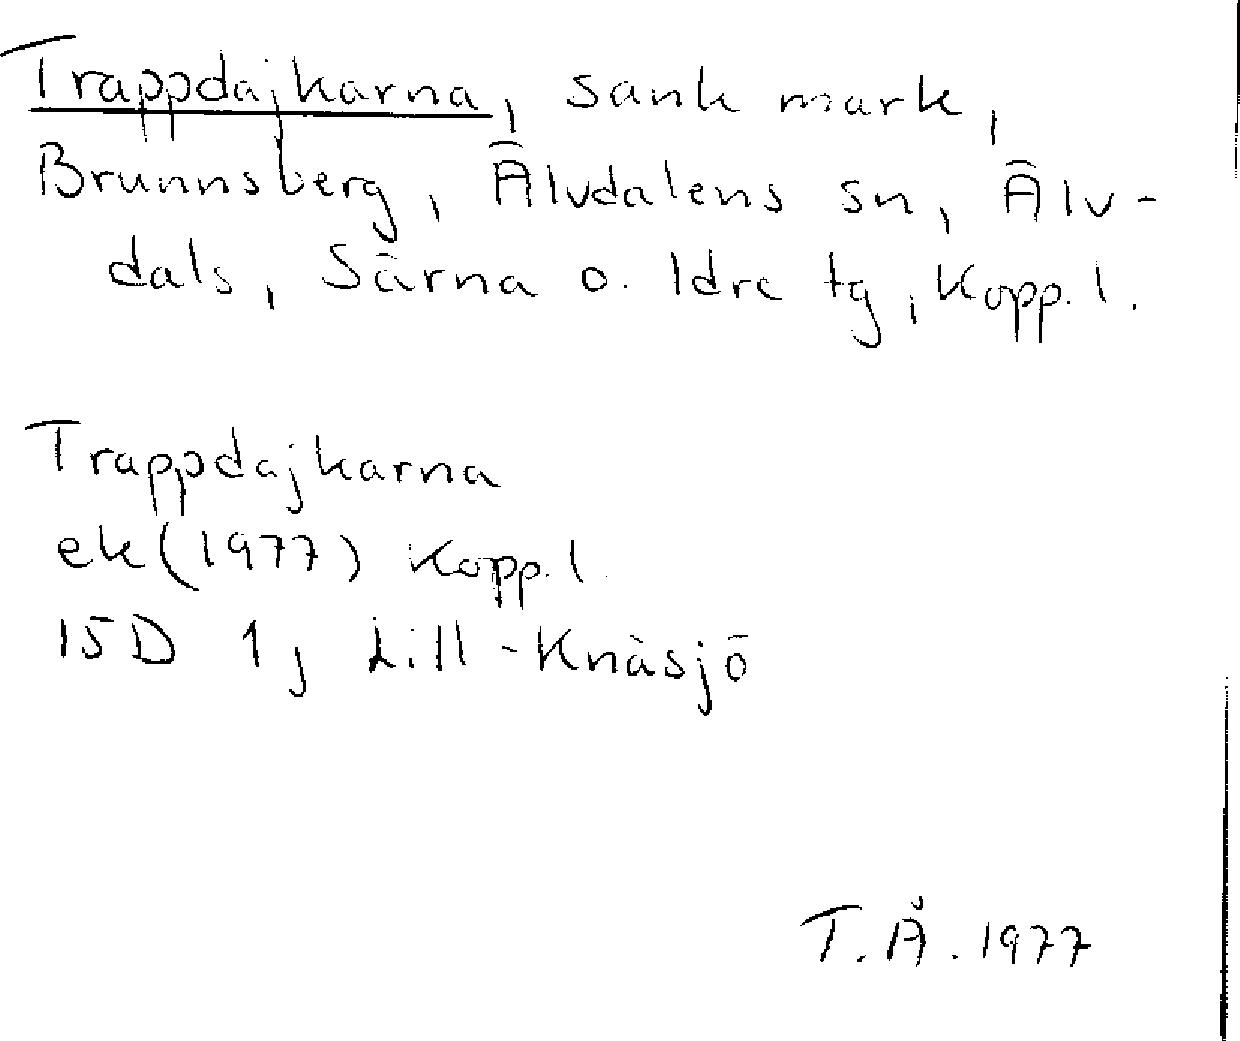 Trappdajkarna, sank mark,
Brunnsberg, Älvdalens sn, Älv-
dals, Särna o. Idre tg, Kopp. l.
Trappdajkarna
ek (1977) Kopp. l.
15D 1j Lill-Knäsjö
T.Å. 1977